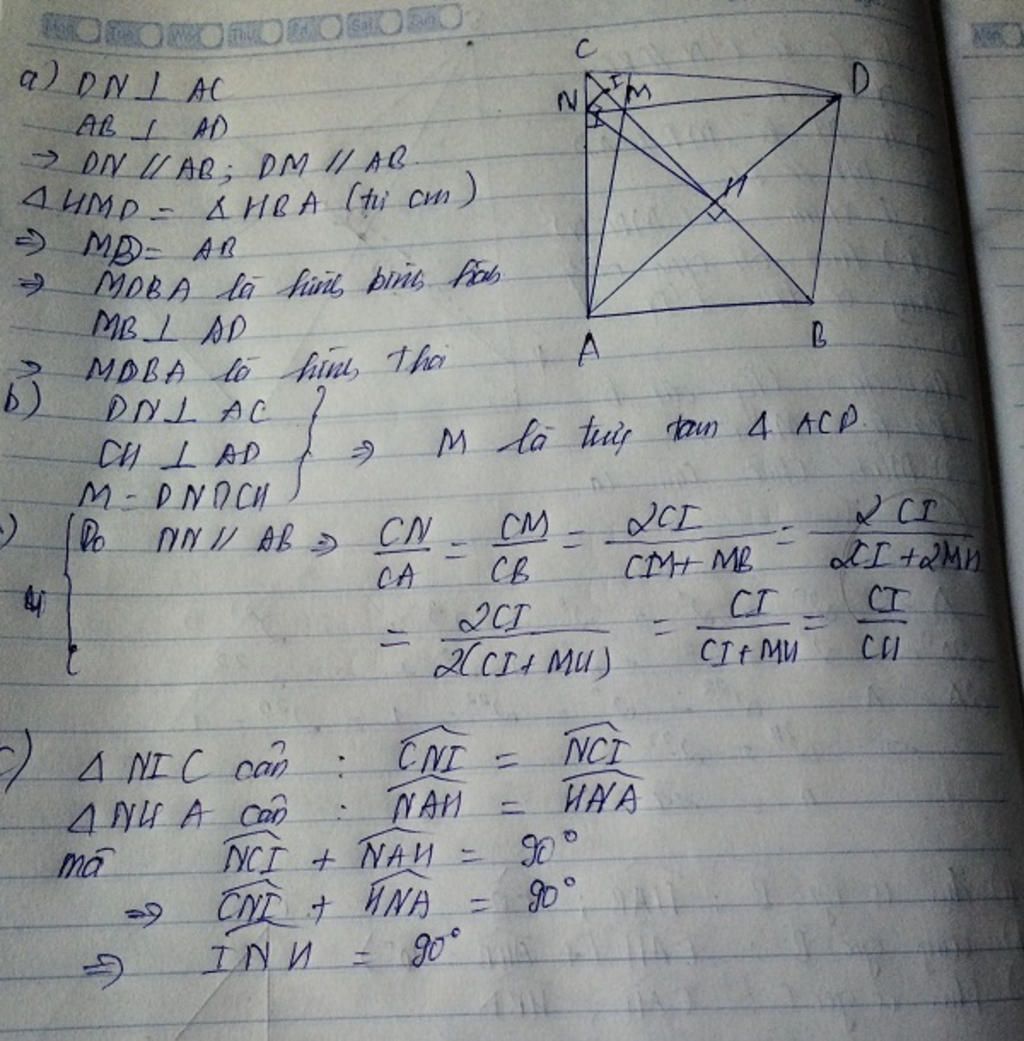 Mon Tue Wed Thu Fri Sat Sun
a) DN ⊥ AC
AB ⊥ AD
⇒ DN // AB ; DM // AB
Δ HMD = Δ HBA (tự cm)
⇒ MD = AB
⇒ MDBA là hình bình hành
MB ⊥ AD
⇒ MDBA là hình thoi
C
N
I
M
D
H
A
B
b) DN ⊥ AC
CH ⊥ AD
M = DN ∩ CH
⇒ M là trực tâm Δ ACD
Do NN // AB ⇒ CN/CA = CM/CB = 2CI/(CM + MB) = 2CI/(2CI + 2MH)
= 2CI/2(CI + MH) = CI/(CI + MH) = CI/CH
c) Δ NIC cân : CNI = NCI
Δ NHA cân : NAH = HNA
mà NCI + NAH = 90°
⇒ CNI + HNA = 90°
⇒ INH = 90°